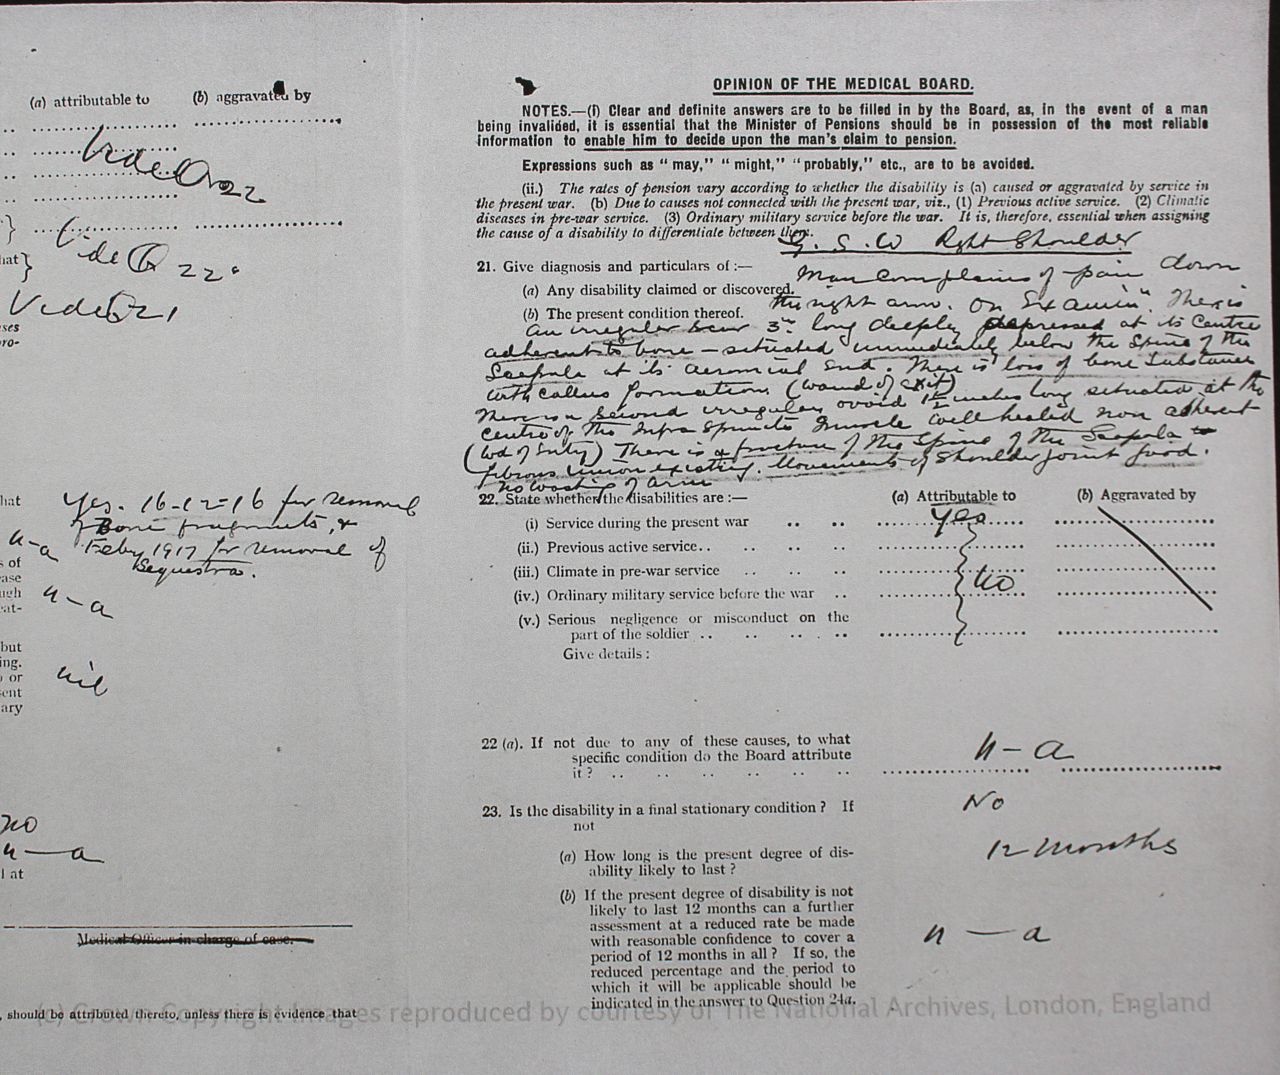 (a) attributable to (b) aggravated by
Vide Q 22
Vide Q 22.
hat}
Vide Q 21
ses
pro-
hat
Yes. 16-12-16 for removal
of Bone fragments, &
Feby 1917 for removal of
Sequestra.
n-a
s of
ase
ugh
eat-
n-a
but
ing.
or
sent
ary
nil
no
n-a
l at
Medical Officer in charge of case.
, should be attributed thereto, unless there is evidence that
OPINION OF THE MEDICAL BOARD.
NOTES.—(i) Clear and definite answers are to be filled in by the Board, as, in the event of a man
being invalided, it is essential that the Minister of Pensions should be in possession of the most reliable
information to enable him to decide upon the man's claim to pension.
Expressions such as "may," "might," "probably," etc., are to be avoided.
(ii.) The rates of pension vary according to whether the disability is (a) caused or aggravated by service in
the present war. (b) Due to causes not connected with the present war, viz., (1) Previous active service. (2) Climatic
diseases in pre-war service. (3) Ordinary military service before the war. It is, therefore, essential when assigning
the cause of a disability to differentiate between them.
G. S. W Right Shoulder
21. Give diagnosis and particulars of :—
Man complains of pain down
(a) Any disability claimed or discovered.
the right arm. On Examin" There is
(b) The present condition thereof.
an irregular scar 3" long deeply depressed at its Centre
adherent to bone — situated immediately below the Spine of the
Scapula at its acromial end. There is loss of bone Substance
with callus formation. (wound of exit)
There is a second irregular ovoid 1½ inches long situated at the
centre of the Infra Spinatus muscle well healed non adherent
(wd of Entry) There is a fracture of the Spine of the Scapula
fibrous union existing. Movements of Shoulder joint good.
No wasting of arm
22. State whether the disabilities are :— (a) Attributable to (b) Aggravated by
(i) Service during the present war .. .. Yes
(ii.) Previous active service.. .. .. ..
(iii.) Climate in pre-war service .. .. ..
(iv.) Ordinary military service before the war .. No
(v.) Serious negligence or misconduct on the
part of the soldier .. .. .. ..
Give details :
22 (a). If not due to any of these causes, to what
specific condition do the Board attribute
it ? .. .. .. .. .. ..
n-a
23. Is the disability in a final stationary condition ? If
not
No
(a) How long is the present degree of dis-
ability likely to last ?
12 months
(b) If the present degree of disability is not
likely to last 12 months can a further
assessment at a reduced rate be made
with reasonable confidence to cover a
period of 12 months in all ? If so, the
reduced percentage and the period to
which it will be applicable should be
indicated in the answer to Question 24a.
n-a
(c) Crown Copyright Images reproduced by courtesy of The National Archives, London, England